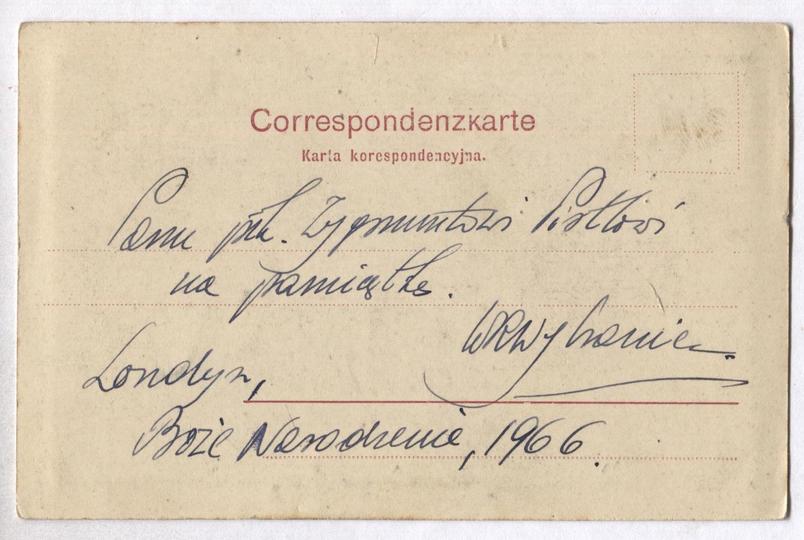 Correspondenzkarte
Karta korespondencyjna.
Panu płk. Zygmuntowi
na pamiątkę.
Londyn,
Boże Narodzenie, 1966.